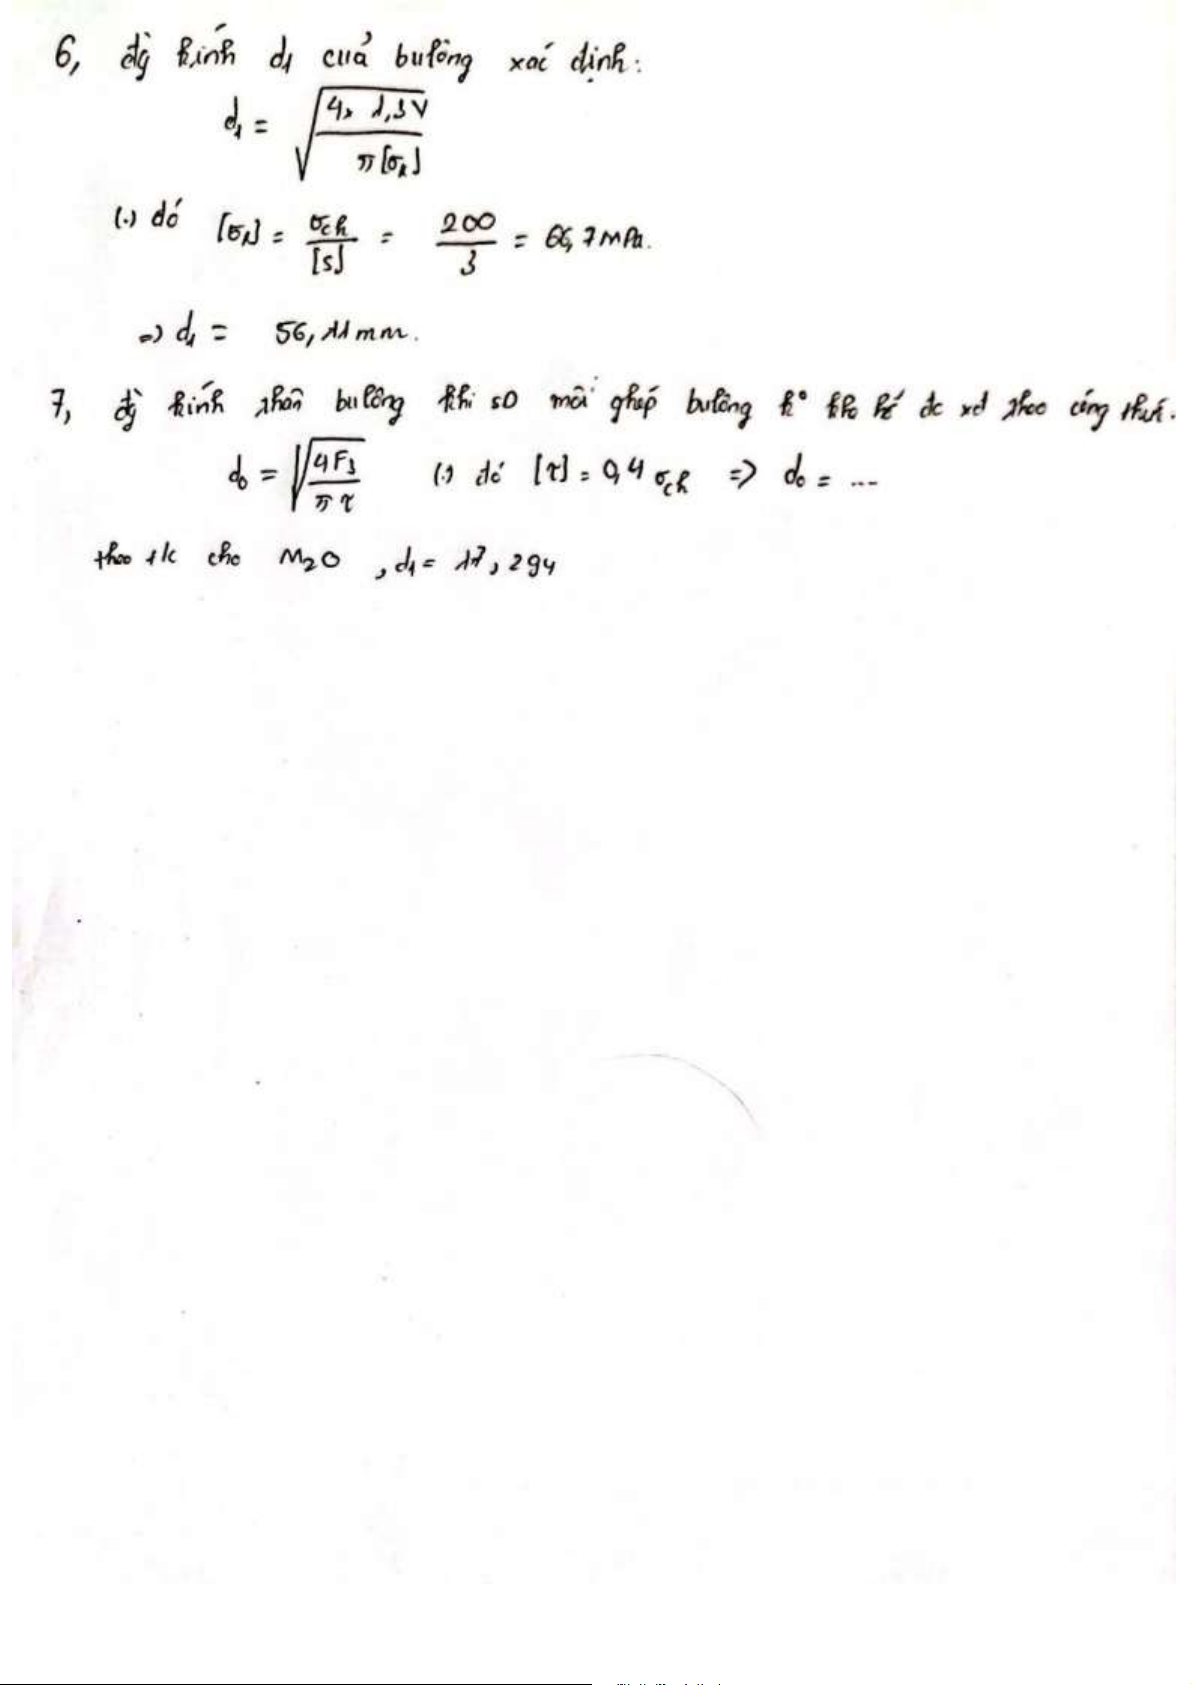 6, đg kính d1 của bulông xác định:
d1 = √(4x 1,3V / π[σk])
(.) đó [σk] = σch / [s] = 200 / 3 = 66,7 MPa.
=> d1 = 56,11mm.
7, đg kính thân bulông khi sD mối ghép bulông k° khe hở đc xđ theo công thức.
d0 = √(4F1 / πτ) (.) đó [τ] = 0,4 σch => d0 = ...
theo tk cho M20 , d1 = 17,294